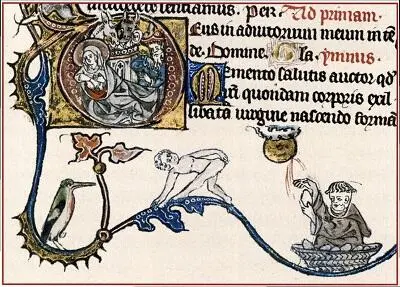 Per. Ad primam.
Eus in adiutorium meum in tē
de. Domine Gla. ymnus
Memento salutis auctor qd
quondam corporis exil
libata uirgine nascendo formā